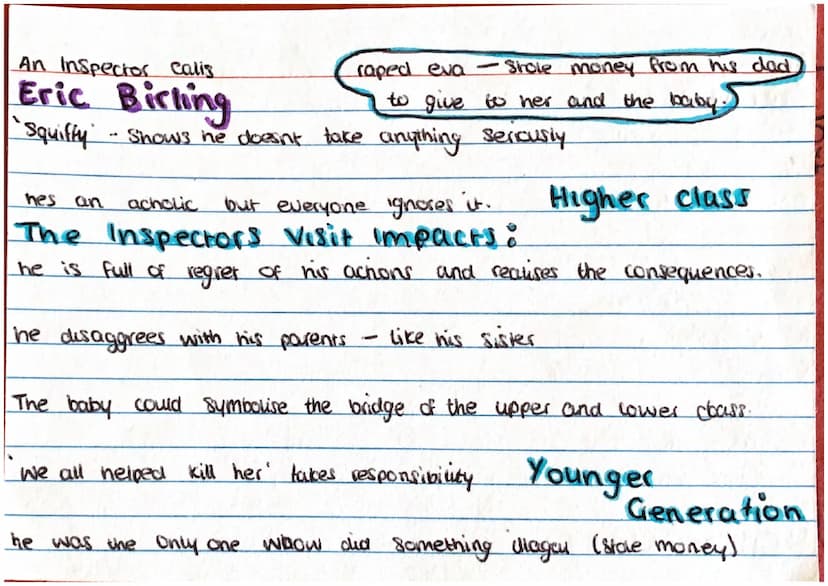 An Inspector calls
Eric Birling
raped eva – stole money from his dad
to give to her and the baby.
'Squiffy' - Shows he doesnt take anything seriously
hes an acholic but everyone ignores it.
Higher class
The Inspectors Visit impacts:
he is full of regret of his actions and realises the consequences.
he disaggrees with his parents – like his sister
The baby could symbolise the bridge of the upper and lower class.
'we all helped kill her' takes responsibility
Younger
Generation
he was the only one who did something illegal (stole money)